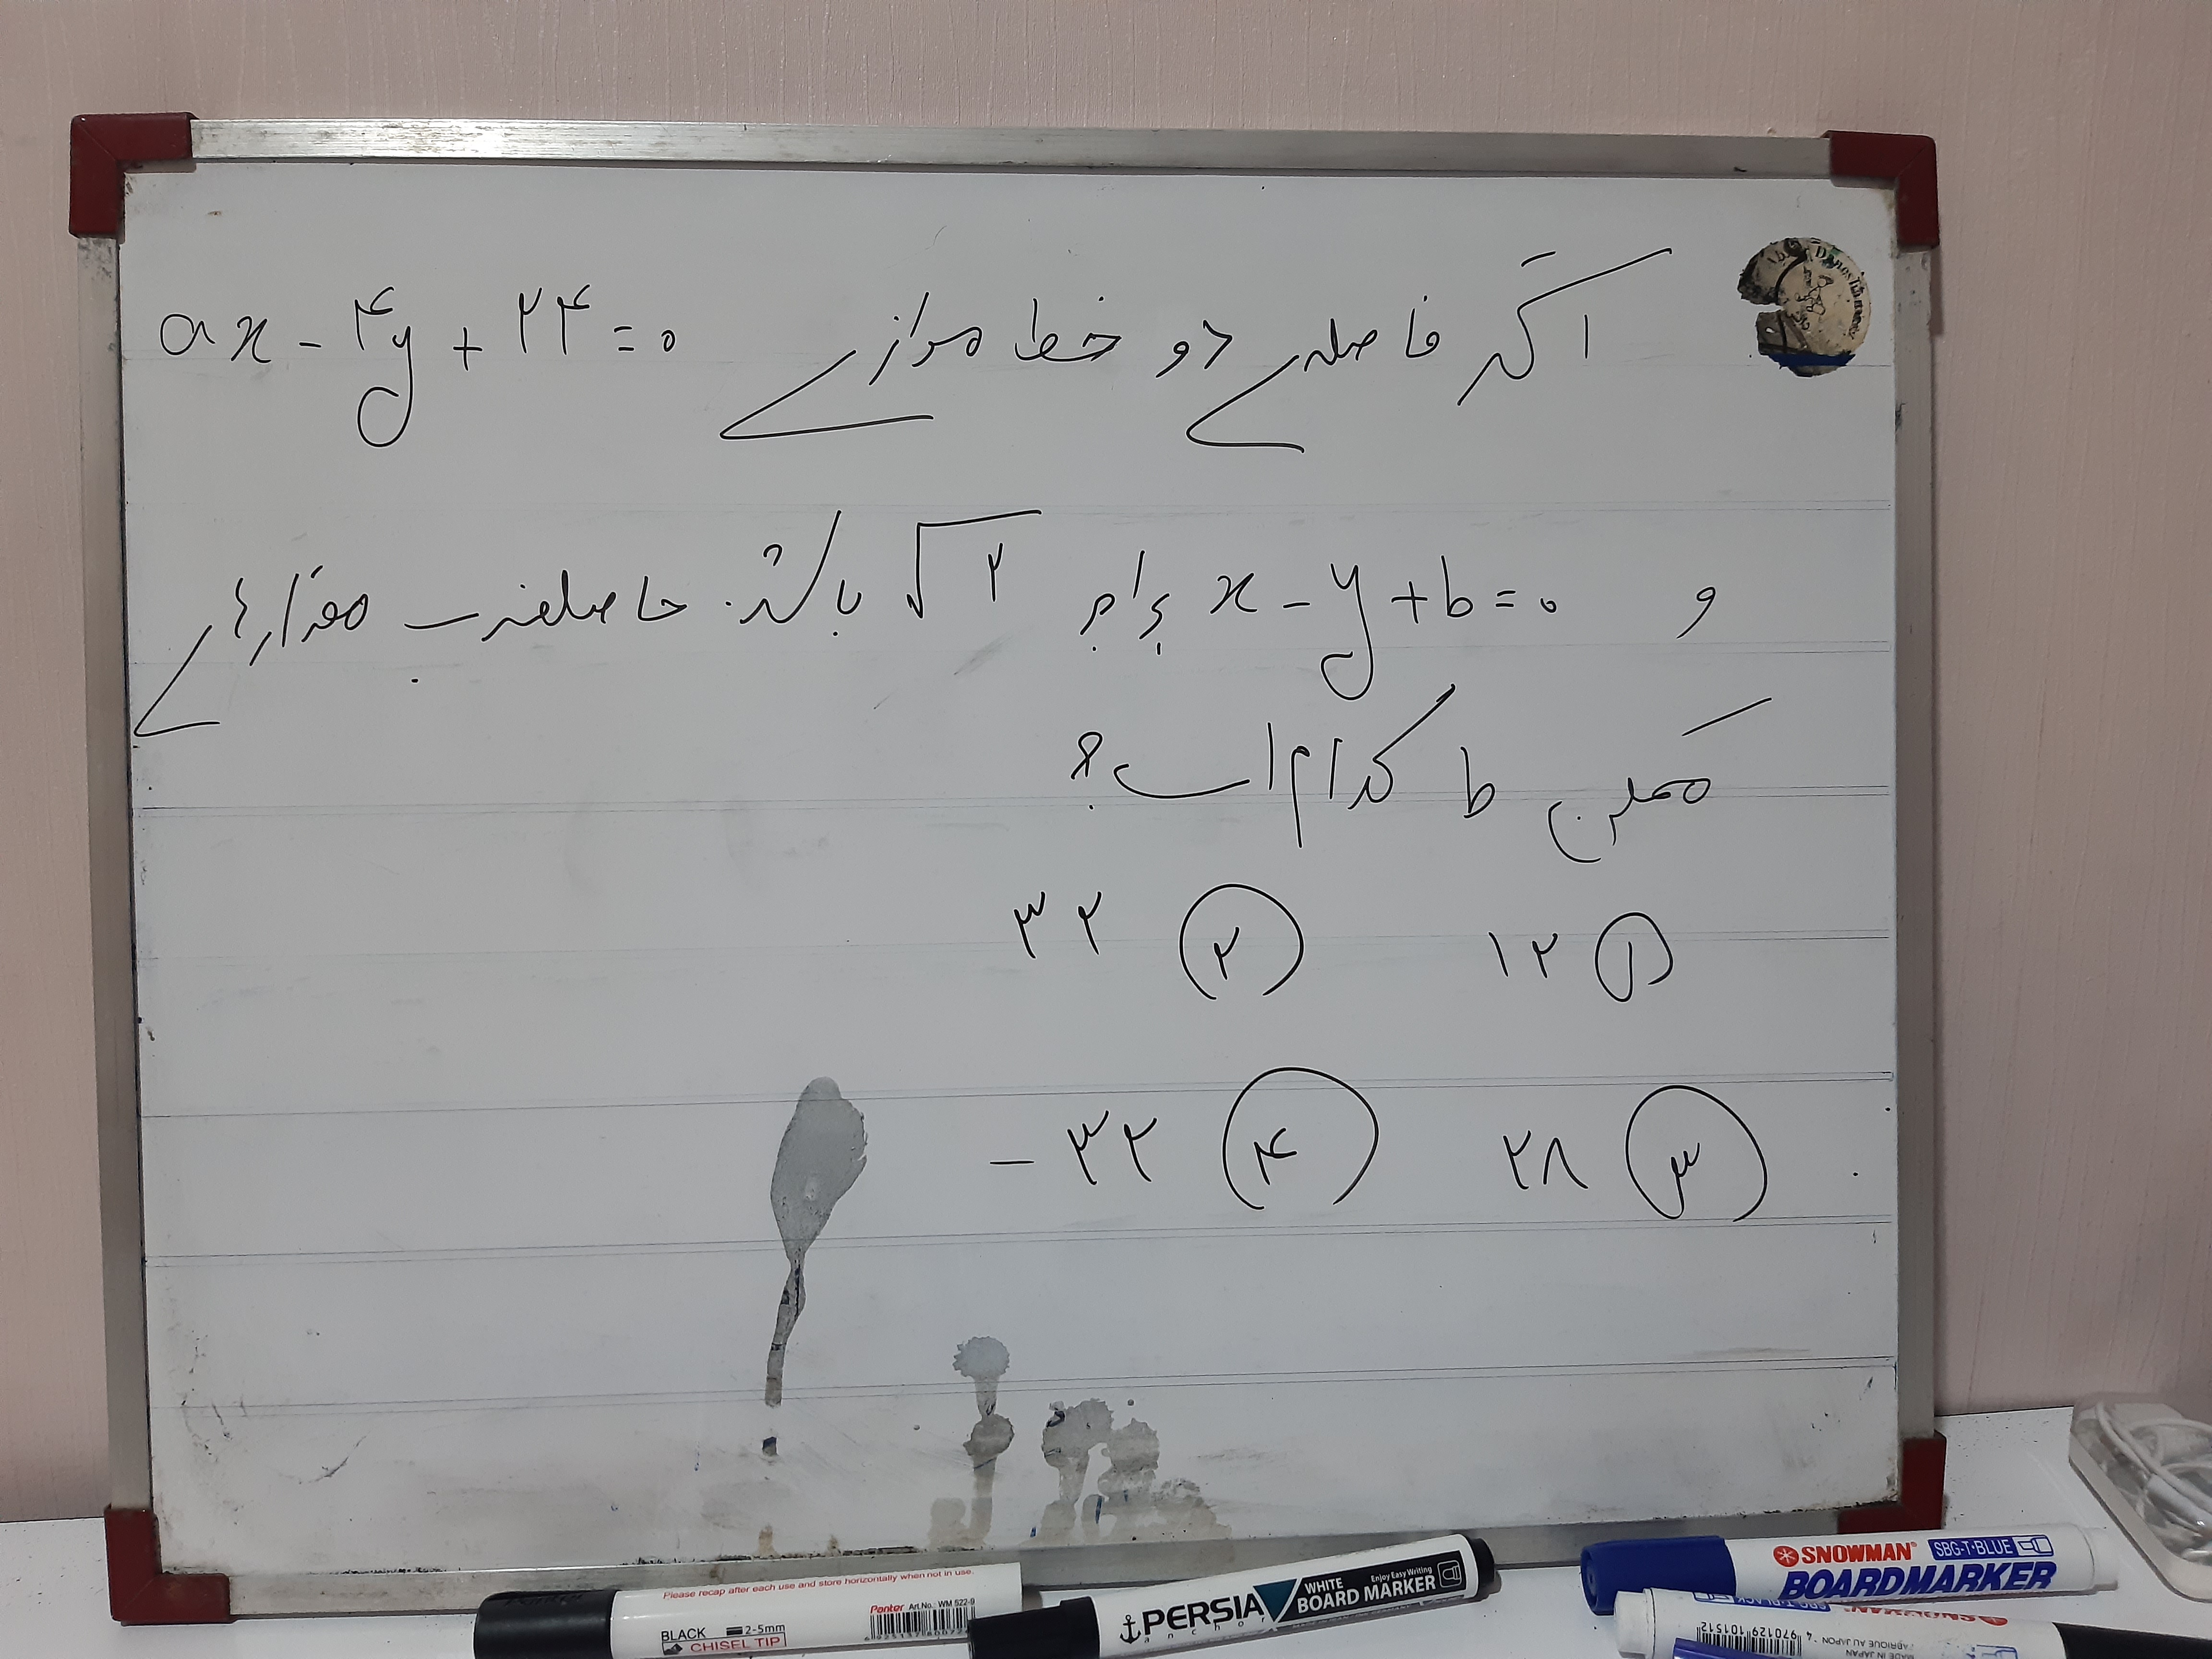 اگر فاصله‌ی دو خط موازی ax - ۴y + ۲۴ = ۰
و x - y + b = ۰ برابر √۲ باشد. حاصلضرب مقدارهای
ممکن b کدام است؟
۱ ۱۲ ۲ ۳۲
۳ ۲۸ ۴ -۳۲
Please recap after each use and store horizontally when not in use.
Panter Art.No.: WM 522-9
BLACK 2-5mm
CHISEL TIP
PERSIA
anchor
WHITE
BOARD MARKER
Enjoy Easy Writing
SNOWMAN SBG-T-BLUE
BOARDMARKER
970129 101512
MADE IN JAPAN
FABRIQUE AU JAPON